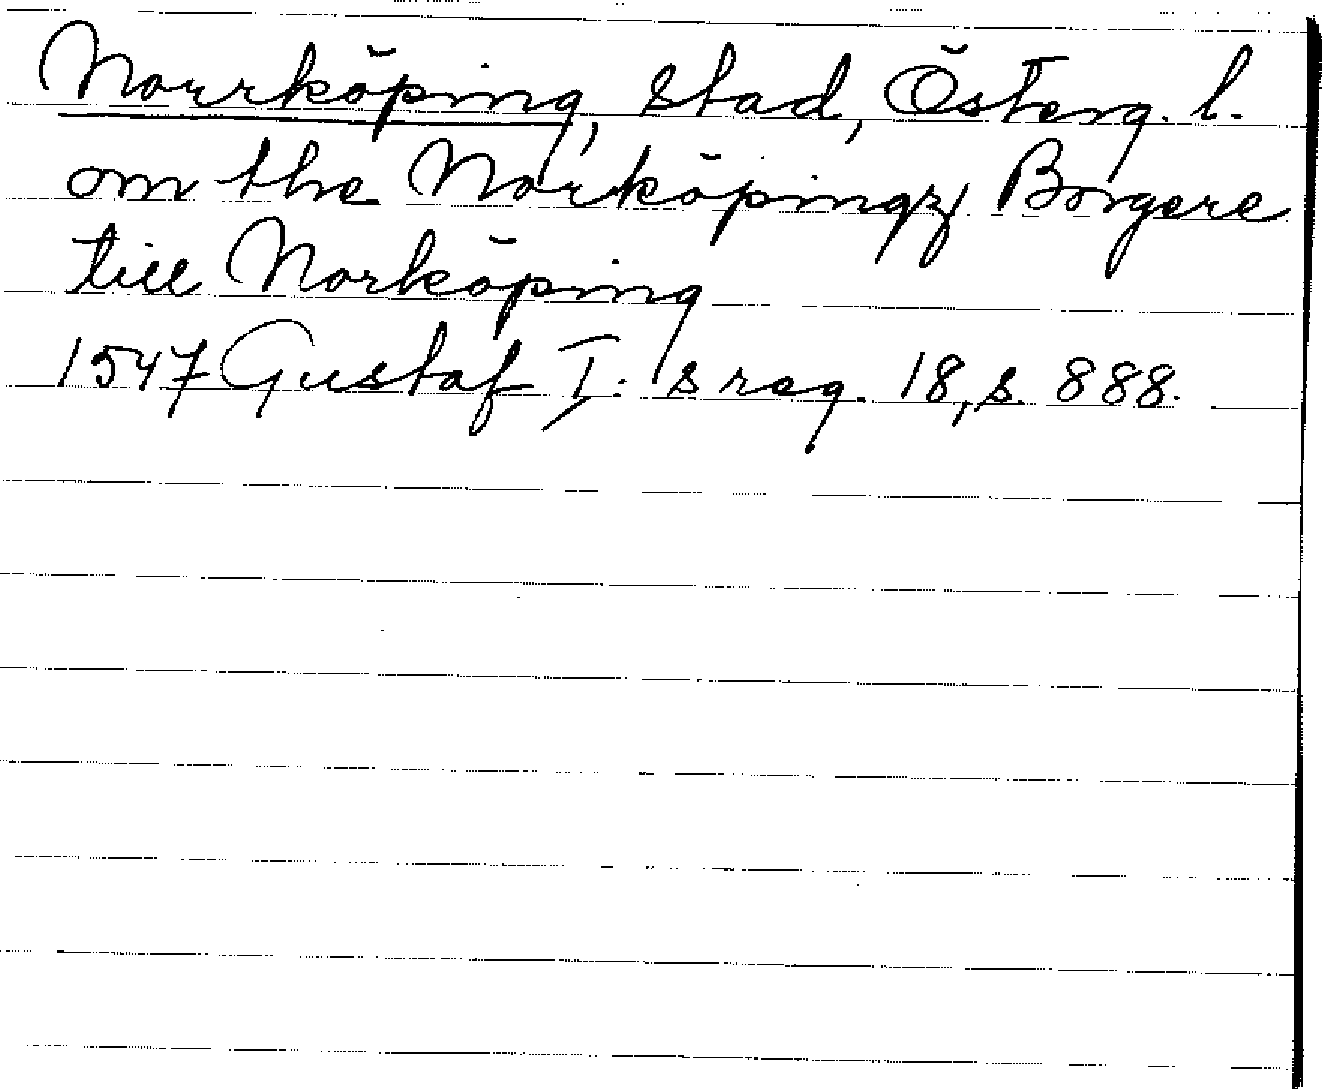 Norrköping, stad, Österg. l.
om the Norköpingz Borgere
till Norköping
1547 Gustaf I:s reg. 18, s. 888.